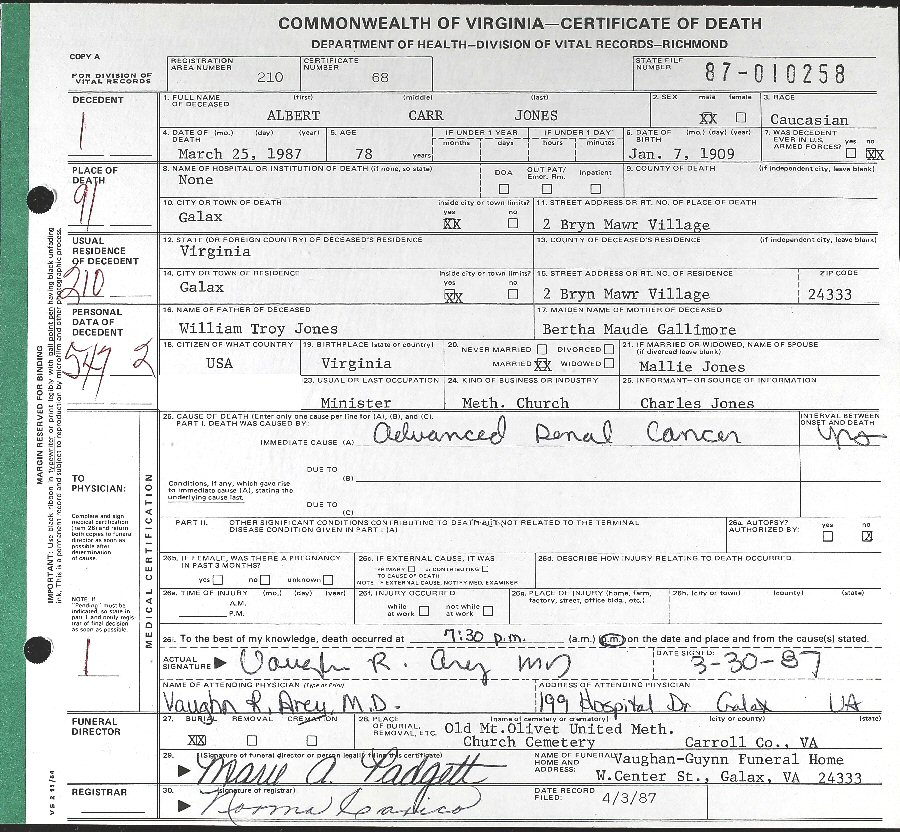 COMMONWEALTH OF VIRGINIA—CERTIFICATE OF DEATH
DEPARTMENT OF HEALTH—DIVISION OF VITAL RECORDS—RICHMOND
COPY A
FOR DIVISION OF VITAL RECORDS
REGISTRATION AREA NUMBER 210
CERTIFICATE NUMBER 68
STATE FILE NUMBER 87-010258
DECEDENT
1
1. FULL NAME OF DECEASED (first) (middle) (last)
ALBERT CARR JONES
2. SEX male female
XX
3. RACE
Caucasian
4. DATE OF DEATH (mo.) (day) (year)
March 25, 1987
5. AGE
78 years
IF UNDER 1 YEAR
months days
IF UNDER 1 DAY
hours minutes
6. DATE OF BIRTH (mo.) (day) (year)
Jan. 7, 1909
7. WAS DECEDENT EVER IN U.S. ARMED FORCES? yes no
XX
PLACE OF DEATH
91
8. NAME OF HOSPITAL OR INSTITUTION OF DEATH (if none, so state)
None
DOA OUT PAT/ Emer. Rm. Inpatient
9. COUNTY OF DEATH (if independent city, leave blank)
10. CITY OR TOWN OF DEATH
Galax
inside city or town limits? yes no
XX
11. STREET ADDRESS OR RT. NO. OF PLACE OF DEATH
2 Bryn Mawr Village
USUAL RESIDENCE OF DECEDENT
210
12. STATE (OR FOREIGN COUNTRY) OF DECEASED'S RESIDENCE
Virginia
13. COUNTY OF DECEASED'S RESIDENCE (if independent city, leave blank)
14. CITY OR TOWN OF RESIDENCE
Galax
inside city or town limits? yes no
XX
15. STREET ADDRESS OR RT. NO. OF RESIDENCE
2 Bryn Mawr Village
ZIP CODE
24333
PERSONAL DATA OF DECEDENT
547 2
16. NAME OF FATHER OF DECEASED
William Troy Jones
17. MAIDEN NAME OF MOTHER OF DECEASED
Bertha Maude Gallimore
18. CITIZEN OF WHAT COUNTRY
USA
19. BIRTHPLACE (state or country)
Virginia
20. NEVER MARRIED DIVORCED
MARRIED XX WIDOWED
21. IF MARRIED OR WIDOWED, NAME OF SPOUSE (if divorced leave blank)
Mallie Jones
23. USUAL OR LAST OCCUPATION
Minister
24. KIND OF BUSINESS OR INDUSTRY
Meth. Church
25. INFORMANT—OR SOURCE OF INFORMATION
Charles Jones
MARGIN RESERVED FOR BINDING
IMPORTANT: Use black ribbon in typewriter or print legibly with ball point pen having black unfading ink. This is a permanent record and subject to reproduction by microfilm and other photographic process.
TO PHYSICIAN:
Complete and sign medical certification (item 26) and return both copies to funeral director as soon as possible after determination of cause.
NOTE: If "Pending" must be indicated, so state in part 1 and notify registrar of final decision as soon as possible.
1
MEDICAL CERTIFICATION
26. CAUSE OF DEATH (Enter only one cause per line for (A), (B), and (C).
PART I. DEATH WAS CAUSED BY:
INTERVAL BETWEEN ONSET AND DEATH
IMMEDIATE CAUSE (A) Advanced Renal Cancer yrs
DUE TO (B)
Conditions, if any, which gave rise to immediate cause (A), stating the underlying cause last.
DUE TO (C)
PART II. OTHER SIGNIFICANT CONDITIONS CONTRIBUTING TO DEATH BUT NOT RELATED TO THE TERMINAL DISEASE CONDITION GIVEN IN PART I (A)
26a. AUTOPSY? AUTHORIZED BY: yes no
X
26b. IF FEMALE, WAS THERE A PREGNANCY IN PAST 3 MONTHS?
yes no unknown
26c. IF EXTERNAL CAUSE, IT WAS
PRIMARY or CONTRIBUTING
TO CAUSE OF DEATH
NOTE IF EXTERNAL CAUSE, NOTIFY MED. EXAMINER
26d. DESCRIBE HOW INJURY RELATING TO DEATH OCCURRED
26e. TIME OF INJURY (mo.) (day) (year)
A.M.
P.M.
26f. INJURY OCCURRED
while at work not while at work
26g. PLACE OF INJURY (home, farm, factory, street, office bldg., etc.)
26h. (city or town) (county) (state)
26i. To the best of my knowledge, death occurred at 7:30 p.m. (a.m.) (p.m.) on the date and place and from the cause(s) stated.
ACTUAL SIGNATURE Vaughn R. Arey MD
DATE SIGNED:
3-30-87
NAME OF ATTENDING PHYSICIAN (Type or Print)
Vaughn R. Arey M.D.
ADDRESS OF ATTENDING PHYSICIAN
199 Hospital Dr Galax VA
FUNERAL DIRECTOR
27. BURIAL REMOVAL CREMATION
XX
28. PLACE OF BURIAL, REMOVAL, ETC. (name of cemetery or crematory) (city or county) (state)
Old Mt.Olivet United Meth.
Church Cemetery Carroll Co., VA
29. (Signature of funeral director or person legally filing this certificate)
Marie A. Padgett
NAME OF FUNERAL HOME AND ADDRESS:
Vaughan-Guynn Funeral Home
W.Center St., Galax, VA 24333
REGISTRAR
30. (signature of registrar)
Norma
DATE RECORD FILED: 4/3/87
VS 2 11/84